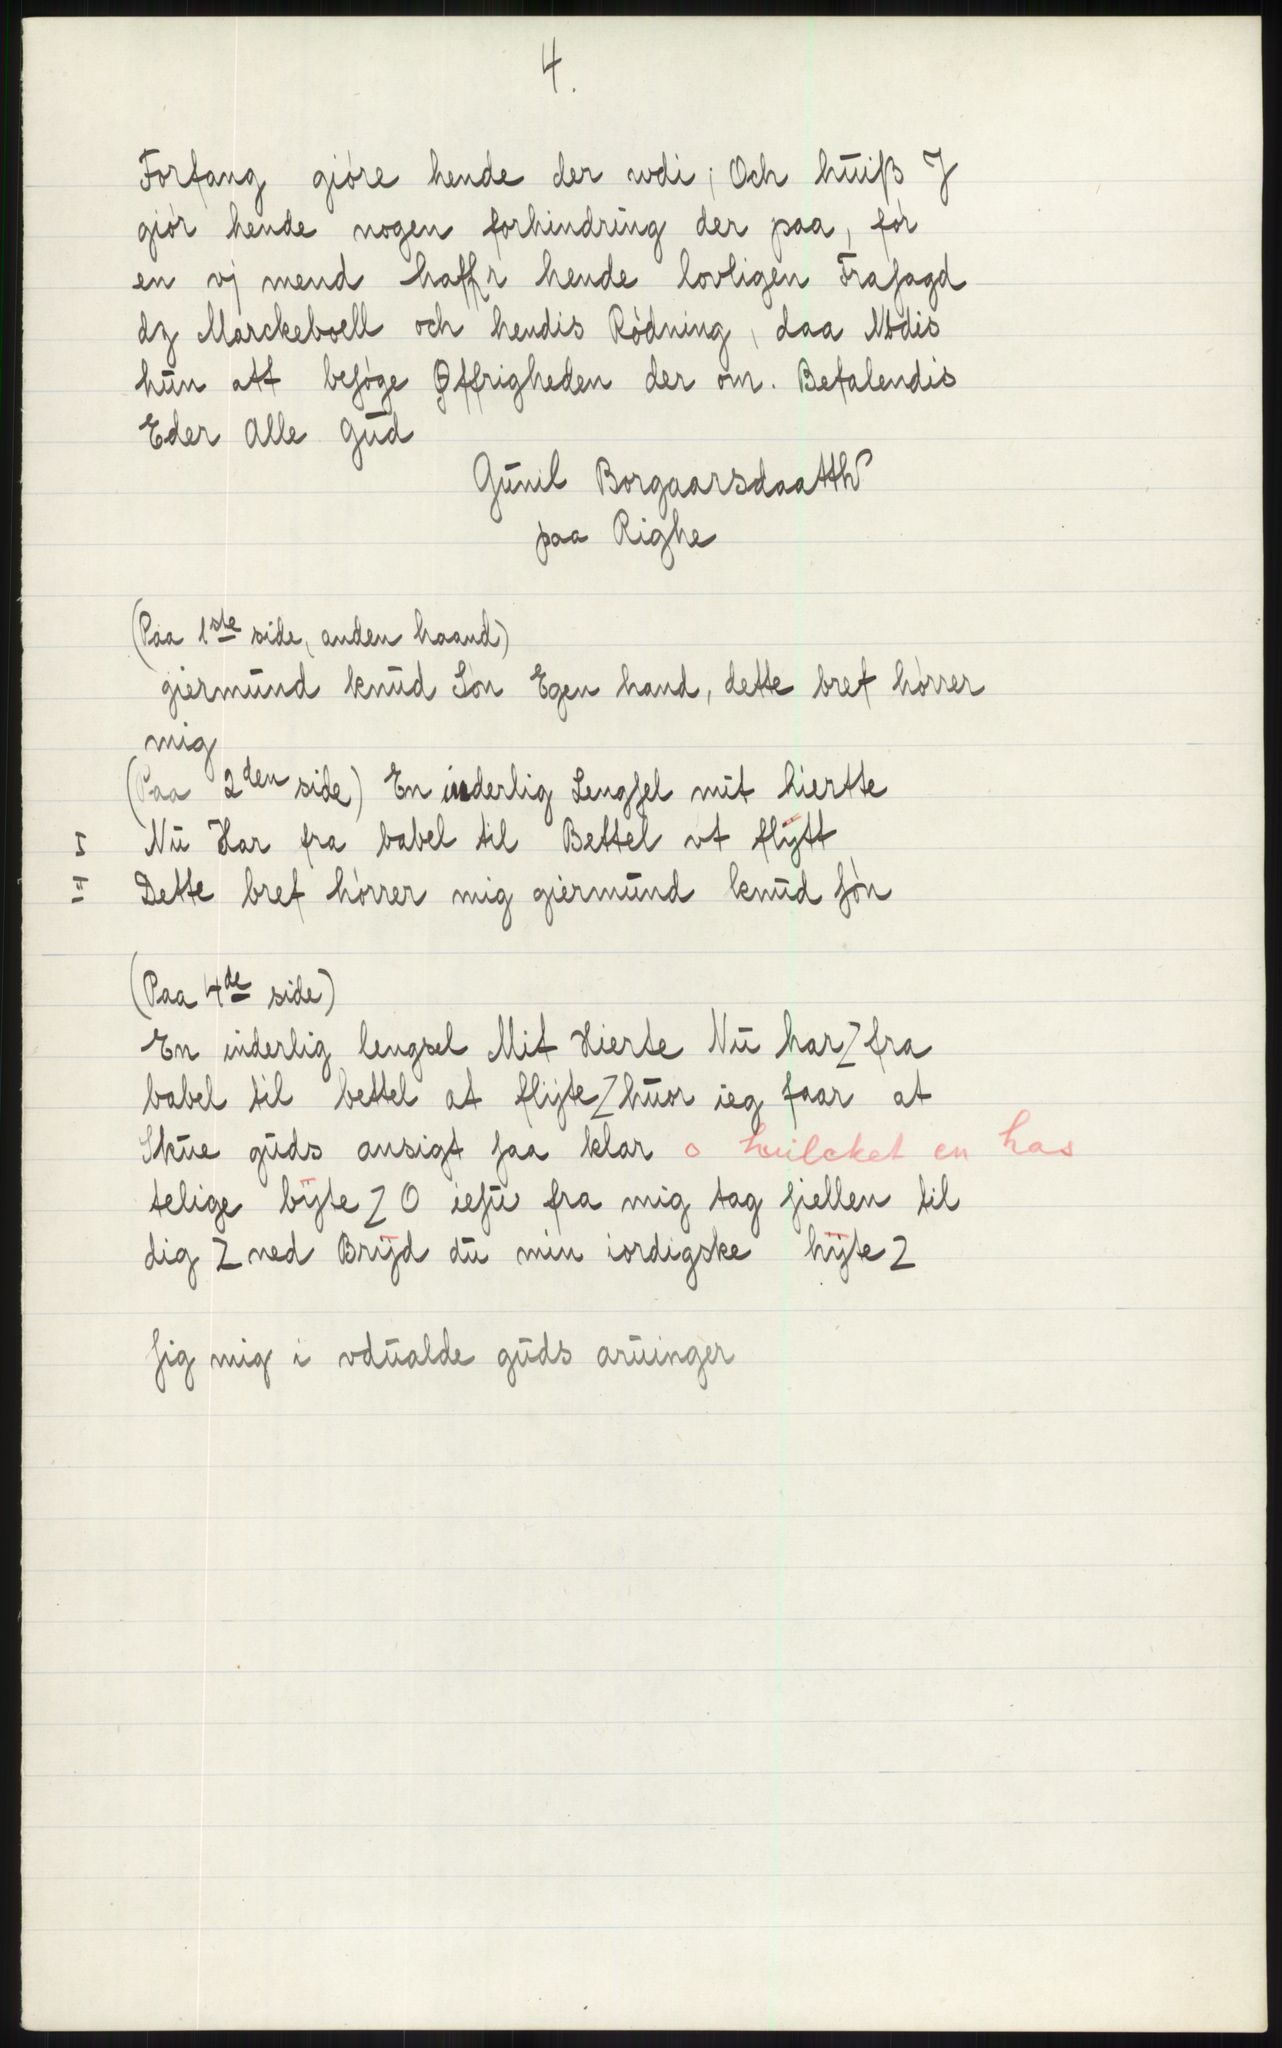 4.
Forfang giøre hende der wdi; Och huiß J
giør hende nogen forhindring der paa, før
en vj mend haffr hende lovligen Frasagd
dz Marckeboell och hendis Rødning, daa Nødis
hun att besøge Øffrigheden der om. Befalendis
Eder Alle Gud
Gunil Borgaarsdaatth
paa Righe
(Paa 1ste side, anden haand)
giermund knud Søn Egen hand, dette bref hørrer
mig
(Paa 2den side) En inderlig Lengsel mit hiertte
I Nu Har fra babel til Bettel vt flÿtt
II Dette bref hørrer mig giermund knud søn
(Paa 4de side)
En inderlig lengsel Mit Hierte Nu har Z fra
babel til bettel at flÿte Z huor ieg faar at
Skue guds ansigt saa klar o huilcket en has
telige bÿte Z O iesu fra mig tag siellen til
dig Z ned Brÿd du min iordigske hÿte Z
sig mig i vdualde guds aruinger